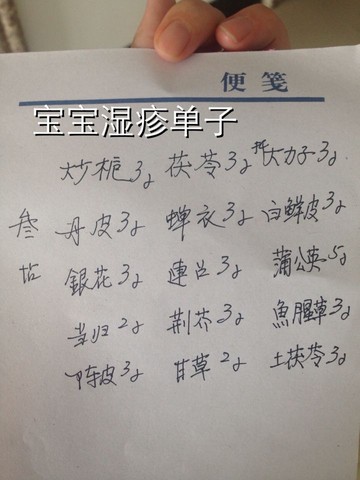 便笺
宝宝湿疹单子
炒栀3g 茯苓3g 大力子3g
丹皮3g 蝉衣3g 白鲜皮3g
叁 銀花3g 連召3g 蒲公英5g
当归2g 荆芥3g 魚腥草3g
陈皮3g 甘草2g 土茯苓3g